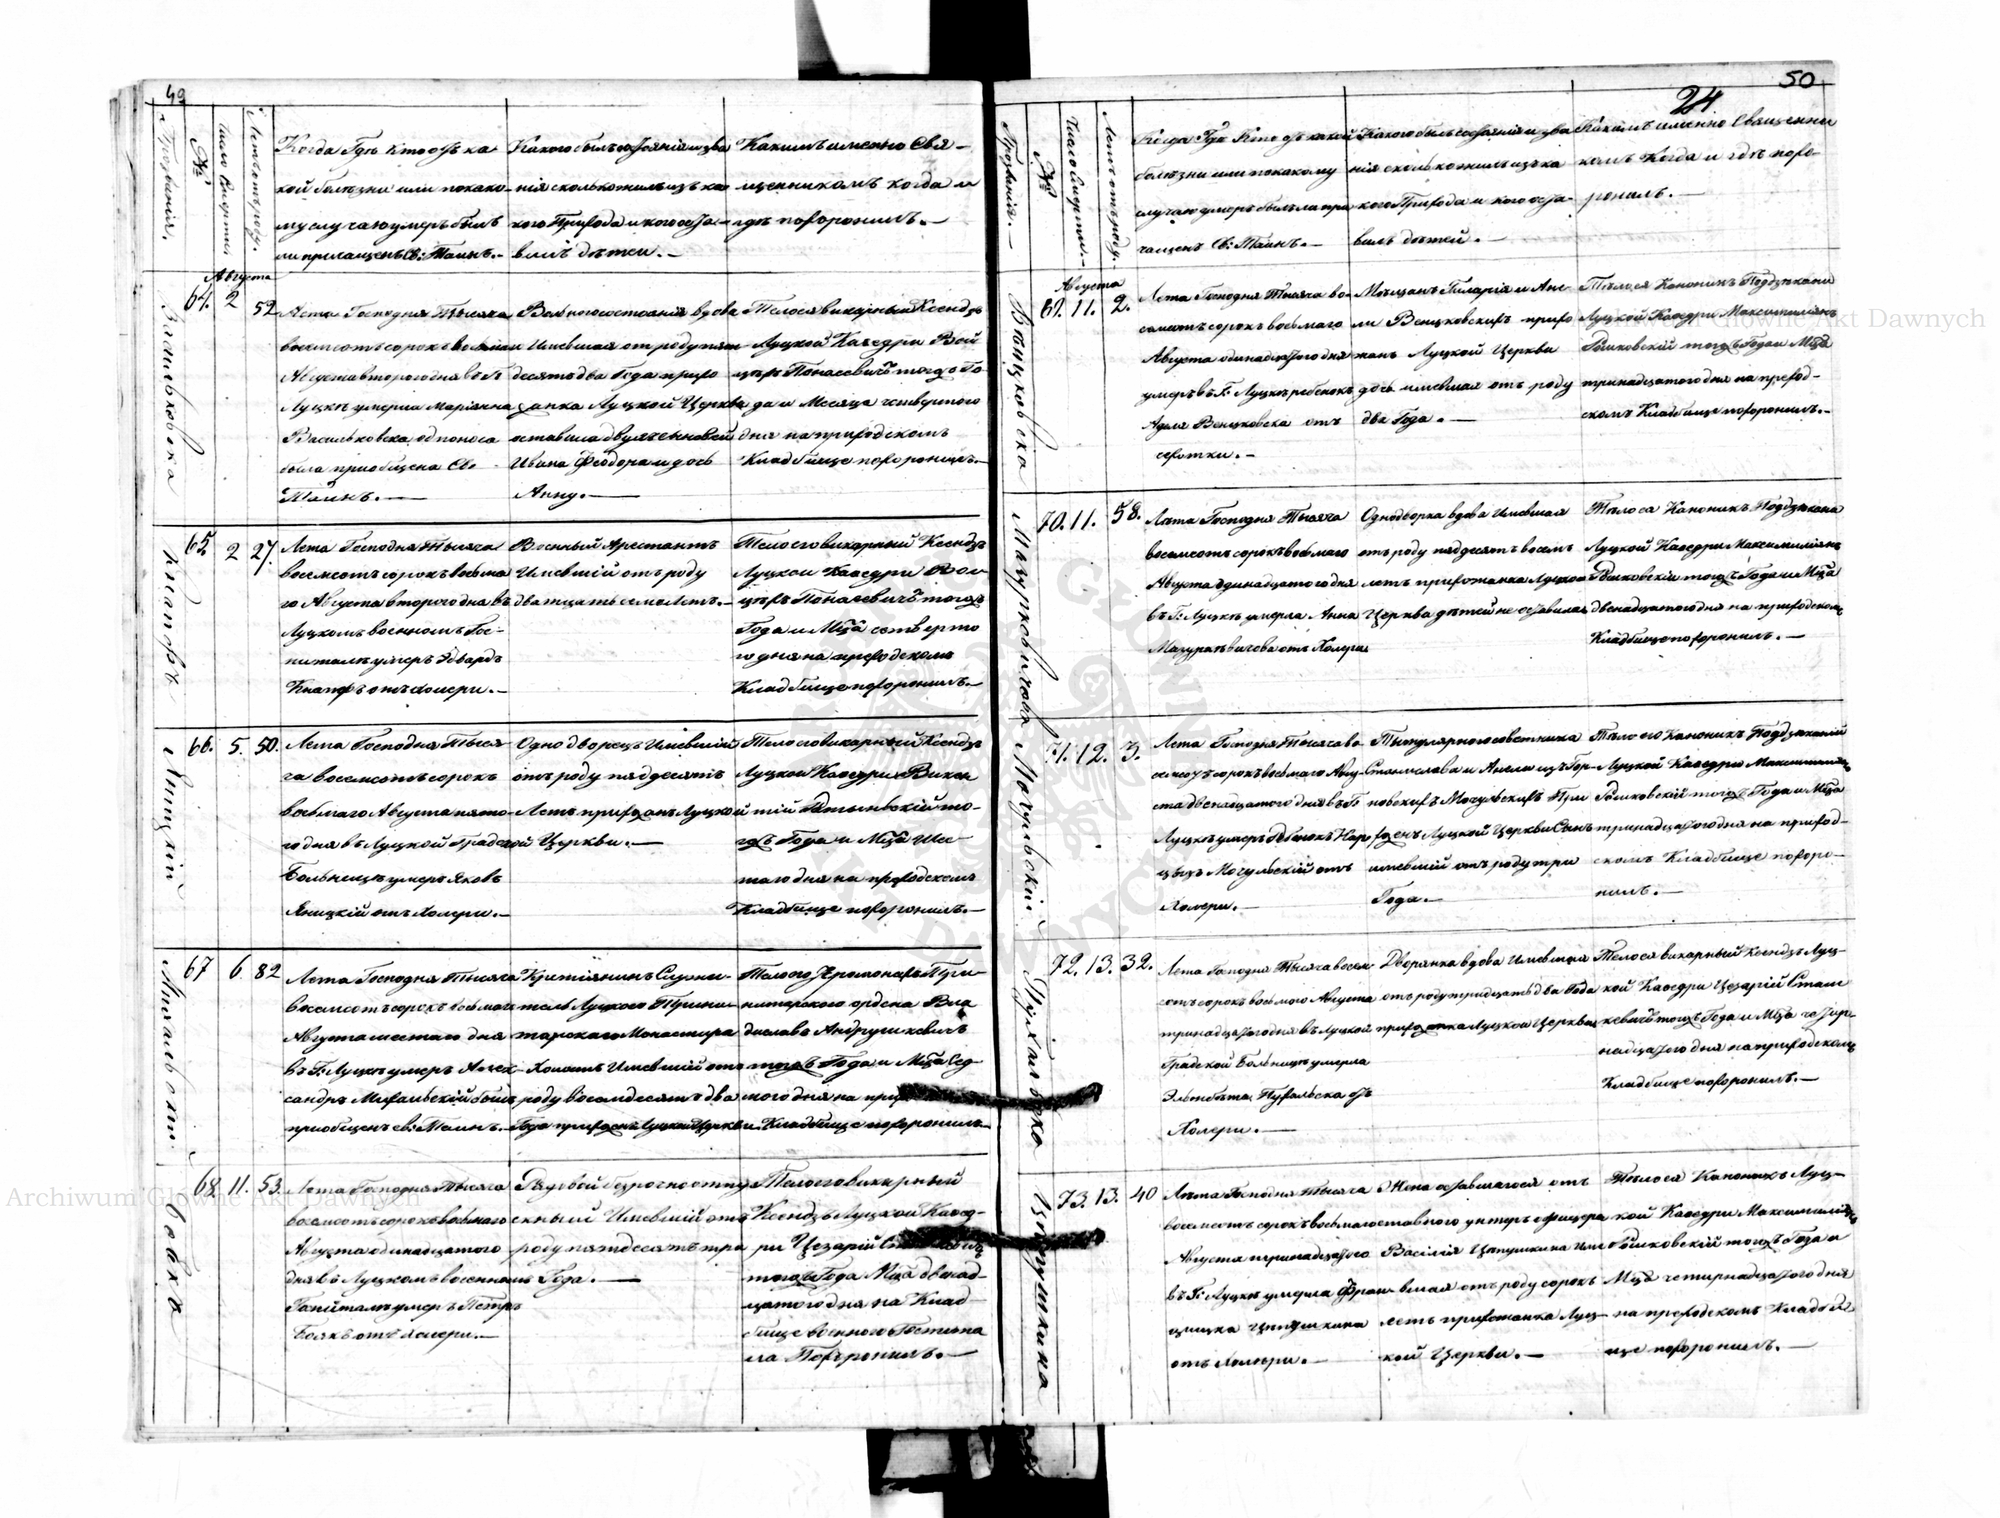 49
Прозванія.
№
Число смерти.
Лета отъ роду.
Когда Гдѣ кто отъ ка-
кой болѣзни или по како-
му случаю умеръ былъ
ли приглащенъ Св: Таинъ.-
Какого былъ состоянія и зва
нія сколько жилъ изъ ка
кого Прихода и кого оста-
вилъ дѣтеи.-
Какимъ именно Свя-
щенникомъ когда и
гдѣ похоронилъ.-
Августа
64. 2 52
Васильковска
Лета Господня Тысяча
восемсотъ сорокъ восмаго
Августа второго дня въ Г:
Луцкѣ умерла Маріянна
Васильковска од поноса
была приобщена Св.
Таинъ.-
Вольного состоянія вдова
Имевшая от роду пят
десятъ два Года прихо
жанка Луцкой Церкви
оставила двух сыновей
Ивана Феодора и дочь
Анну.-
Тело ея викарный Ксендзъ
Луцкой Каѳедри Вой
цѣхъ Понасевичъ тогожъ Го
да и Месяца четвертого
дня на приходскомъ
Кладбище похоронилъ.-
65. 2 27.
Кнапфъ
Лета Господня Тысяча
восемсотъ сорокъ восма
го Августа второго дня въ
Луцкомъ военномъ Гос-
питалѣ умеръ Эдвардъ
Кнапфъ отъ холери.-
Военный Арестантъ
Имевшій отъ роду
двадцать семь Летъ.-
Тело его викарный Ксендзъ
Луцкои Каѳедри Вой
цѣхъ Понасевичъ тогожъ
Года и Мца четверто
го дня на приходскомъ
Кладбище похоронилъ.-
66. 5. 50.
Яницкій
Лета Господня Тыся-
ча восемсотъ сорокъ
восьмаго Августа пято-
го дня въ Луцкой Градской
Больницѣ умеръ Яковъ
Яницкій отъ Холери.-
Однодворецъ Имевшій
отъ роду пядьдесятъ
Летъ прихожанъ Луцкой
Церкви.-
Тело его викарный Ксендзъ
Луцкой Каѳедри Викен
тій
гожъ Года и Мца Шес
таго дня на приходскомъ
Кладбище похоронилъ.-
67 6. 82
Михальскій
Лета Господня Тысяча
восемсотъ сорокъ восмаго
Августа шестаго дня
въ Г: Луцкѣ умеръ Алек-
сандръ Михальскій былъ
приобщенъ св: Таинъ.-
Крестіянинъ Служи-
тель Луцкого Трини-
тарского Монастира
Холостъ Имевшій отъ
роду восемдесятъ два
Года прихожанъ Луцкой Церкви.
Тело его Іеромонахъ Три-
нитарского ордена Вла
диславъ Андрушкевичъ
тогожъ Года и Мца Сед
мого дня на при
Кладбище похоронилъ.
68. 11. 53.
Бойко
Лета Господня Тысяча
восемсотъ сорокъ восьмого
Августа одинадцатого
дня въ Луцкомъ военномъ
Гопиталѣ умеръ Петръ
Бойкъ отъ холери.-
Рядовой безрочно отпу
скный Имевшій отъ
роду пятдесятъ три
Года.-
Тело его викарный
Ксендзъ Луцкой Каѳед-
ри Цезарій
тогожъ Года Мца двенад-
цатого дня на Клад
бище военного Гостита
ла Похоронилъ.-
50
24
Прозванія.-
№
Число смерти.-
Лета отъ роду.
Когда Гдѣ Кто отъ какой
болѣзни или по какому
случаю умеръ былъ ли при
чащенъ Св: Таинъ.-
Какого былъ состоянія и зва
нія сколько жилъ изъ ка
кого Прихода и кого оста-
вилъ дѣтей.-
Какимъ именно Священни
комъ Когда и гдѣ похо-
ронилъ.-
Августа
69. 11. 2.
Венцковска
Лета Господня Тысяча во-
семсотъ сорокъ восьмаго
Августа одинадцатого дня
умеръ въ Г: Луцкѣ ребенокъ
Аделя Венцковска отъ
сухотки.-
Мѣщанъ Гиларія и Анє-
ли Венцковскихъ прихо
жанъ Луцкой Церкви
дочь имевшая отъ роду
два Года.-
Тѣло ея Каноникъ Подзѣкани
Луцкой Каѳедри Максимиліянъ
Гошковскій тогожъ Года и Мца
тринадцатого дня на приход-
скомъ Кладбище похоронилъ.-
70. 11. 58.
Мацуркевичова
Лета Господня Тысяча
восемсотъ сорокъ восьмаго
Августа одинадцатого дня
въ Г: Луцкѣ умерла Анна
Мацуркевичова отъ Холери
Однодворка вдова Имевшая
отъ роду пядесятъ восемъ
летъ прихожанка Луцкой
Церкви дѣтей не оставила
Тѣло ея Каноникъ Подзѣкана
Луцкой Каѳедри Максимиліянъ
Гошковскій тогожъ Года и Мца
двенадцатого дня на приходскомъ
Кладбище похоронилъ.-
71. 12. 3.
Могульскій
Лета Господня Тысяча во
семсотъ сорокъ восьмаго Авгу-
ста двенадцатого дня въ Г:
Луцкѣ умеръ Ребенокъ Нар
цызъ Могульскій отъ
Холери.-
Титулярного советника
Станислава и Анели изъ Гор-
новскихъ Могульскихъ При
хожанъ Луцкой Церкви Синъ
имевшій отъ роду три
Года.-
Тѣло его Каноникъ Подзѣканій
Луцкой Каѳедри Максимиліянъ
Гошковскій тогожъ Года и Мца
тринадцатого дня на приход-
скомъ Кладбище похоро-
нилъ.-
72. 13. 32.
Лета Господня Тысяча восем
сотъ сорокъ восьмого Августа
тринадцатого дня въ Луцкой
Градской Больницѣ умерла
Эльжбета Пухальска отъ
Холери.-
Дворянка вдова Имевшая
отъ роду тридцать два Года
прихожанка Луцкой Церкви
Тело ея викарный Ксендзъ Луц-
кой Каѳедри Цезарій Стани
кевичъ тогожъ Года и Мца четыр-
надцатого дня на приходскомъ
Кладбище похоронилъ.-
73. 13. 40
Цяпушкина
Лѣта Господня Тысяча
восемсотъ сорокъ восьмаго
Августа тринадцатого
въ Г: Луцкѣ умерла Фран-
цишка Цяпушкина
отъ Холери.-
Жена оставшагося отъ
ставного унтеръ офицера
Василія Цяпушкина Име
вшая отъ роду сорокъ
летъ прихожанка Луц-
кой Церкви.-
Тѣло ея Каноникъ Луц-
кой Каѳедри Максимиліянъ
Гошковскій тогожъ Года и
Мца четирнадцатого дня
на приходскомъ Кладби
ще похоронилъ.-
Archiwum Główne Akt Dawnych